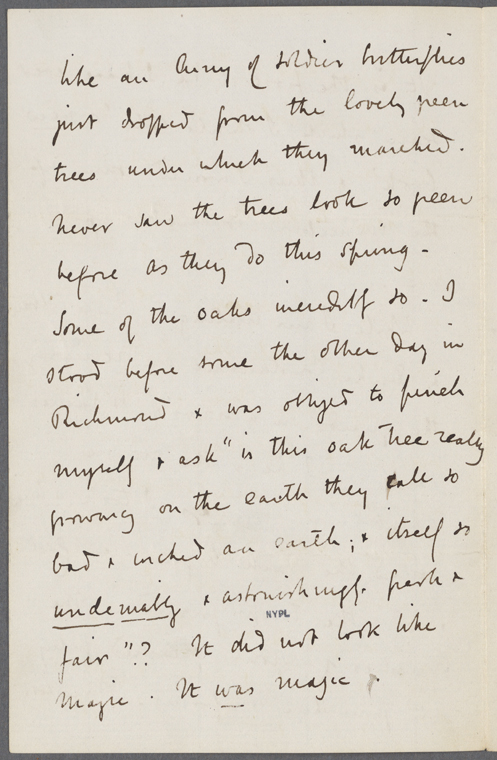 like an Army of soldier butterflies
just dropped from the lovely green
trees under which they marched.
never saw the trees look so green
before as they do this spring -
Some of the oaks incredibly so - I
stood before some the other day in
Richmond & was obliged to pinch
myself & ask "is this oak tree really
growing on the earth they call so
bad & wicked an earth; & itself so
undeniably & astonishingly fresh &
NYPL
fair"? It did not look like
magic. It was magic.